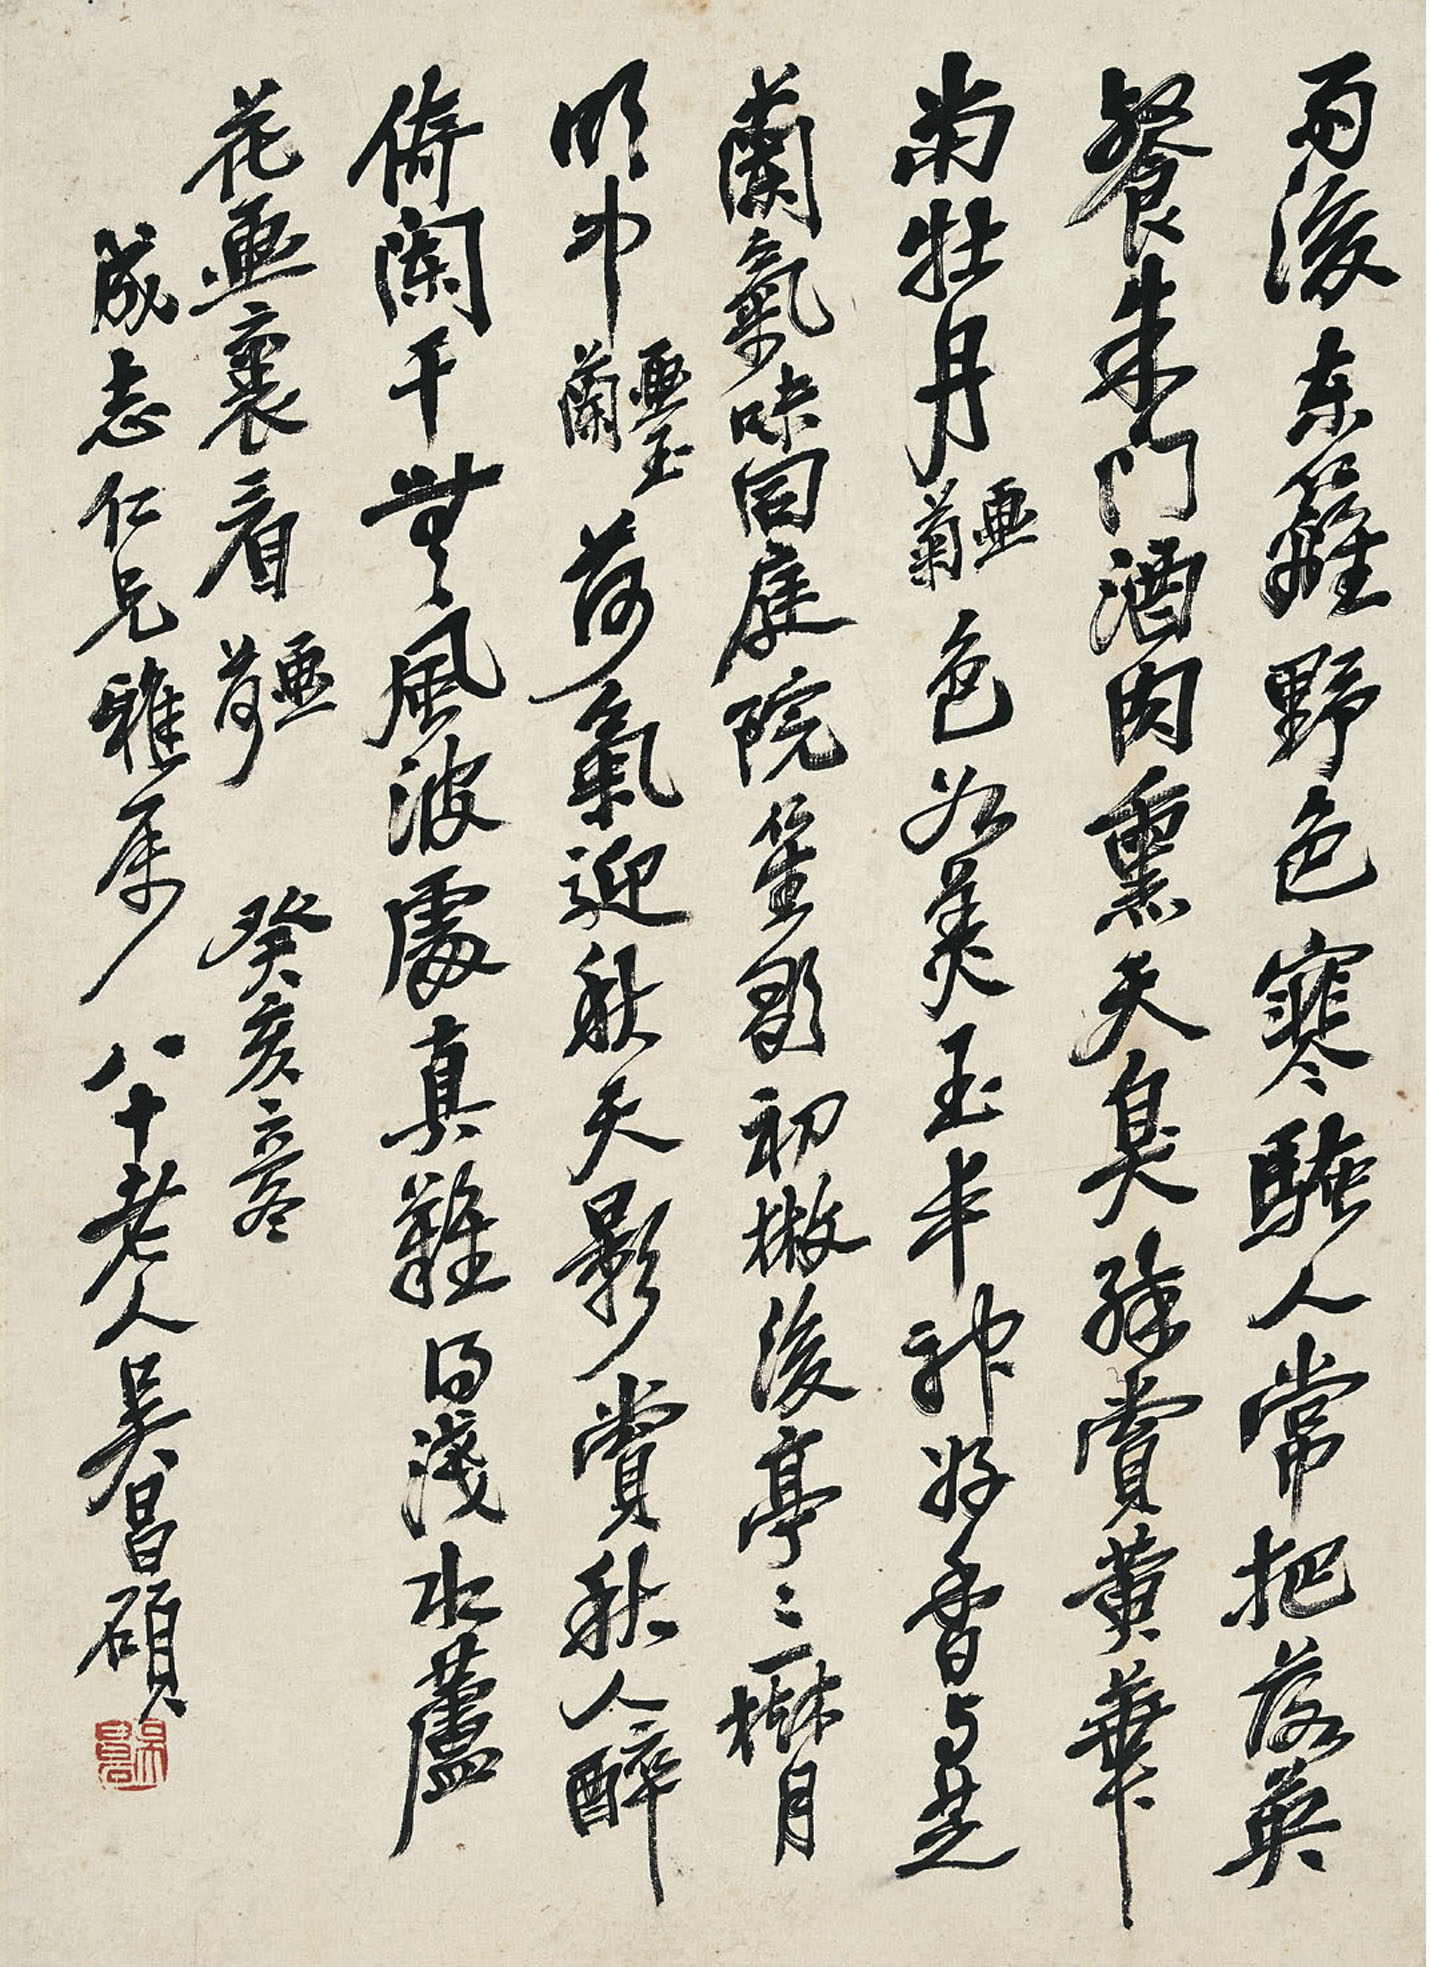 雨後東籬野色寒騷人常把落英
餐朱門酒肉熏天臭孫賞黃華
當牡丹畫菊色如美玉丰神好香与芝
蘭氣味同庭院笙歌初撤後亭亭一樹月
明中畫玉蘭荷氣迎秋天影賞秋人醉
倚闌干無風波處真難得淺水蘆
花畫裏看畫荷癸亥立冬
成志仁兄雅屬八十老人吳昌碩